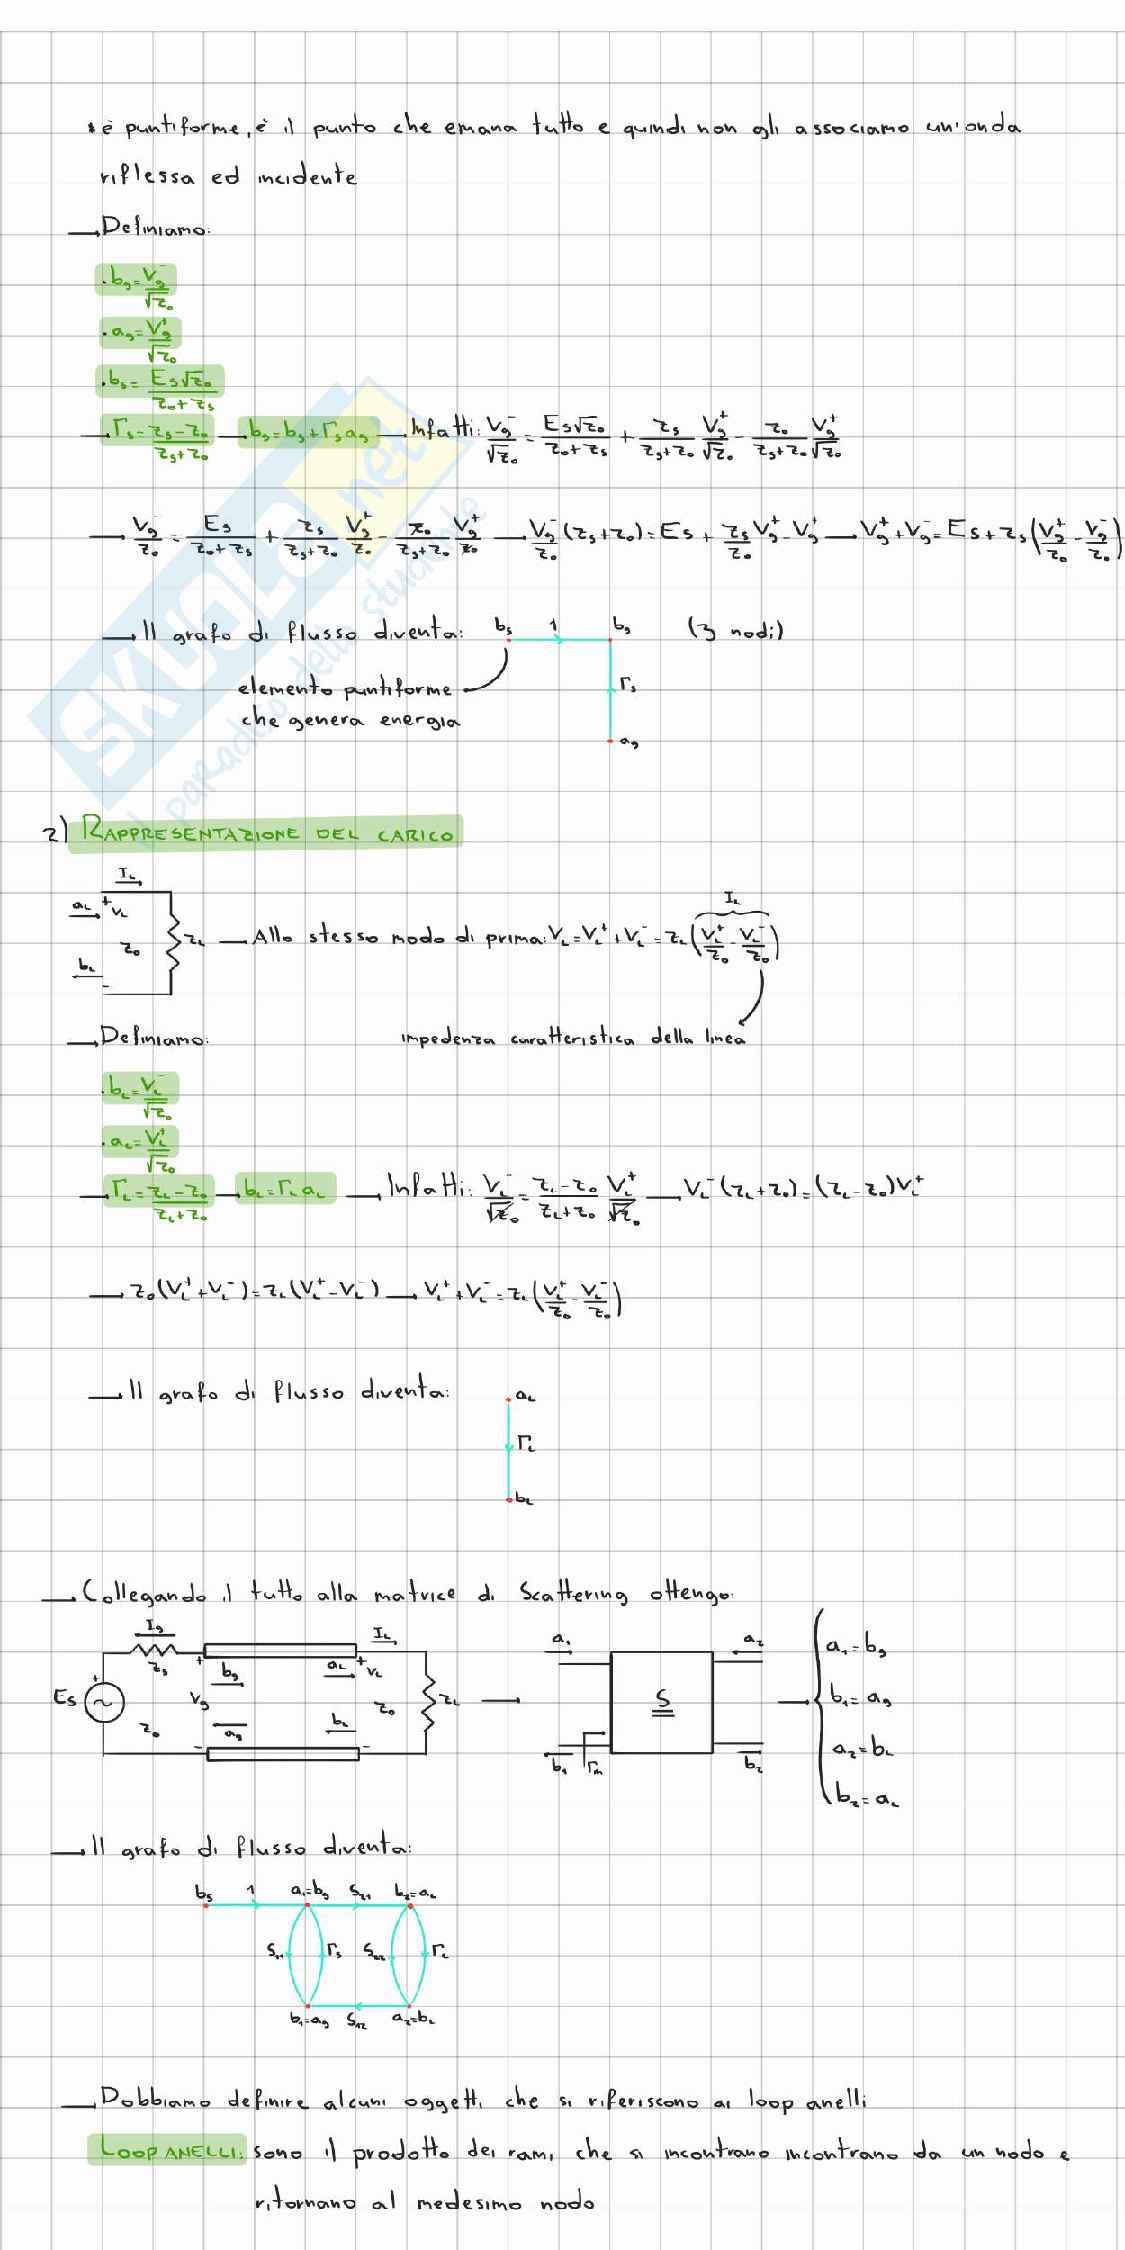 • è puntiforme, è il punto che emana tutto e quindi non gli associamo un'onda
riflessa ed incidente
→ Definiamo:
• b_g = V_g^-/√Z_0
• a_g = V_g^+/√Z_0
• b_s = E_s√Z_0/(Z_0+Z_s)
→ Γ_s = (Z_s-Z_0)/(Z_s+Z_0) → b_g = b_s + Γ_s a_g → Infatti: V_g^-/√Z_0 = E_s√Z_0/(Z_0+Z_s) + Z_s/(Z_s+Z_0) V_g^+/√Z_0 - Z_0/(Z_s+Z_0) V_g^+/√Z_0
→ V_g^-/Z_0 = E_s/(Z_0+Z_s) + Z_s/(Z_s+Z_0) V_g^+/Z_0 - Z_0/(Z_s+Z_0) V_g^+/Z_0 → V_g^-/Z_0 (Z_s+Z_0) = E_s + Z_s/Z_0 V_g^+ - V_g^+ → V_g^+ + V_g^- = E_s + Z_s (V_g^+/Z_0 - V_g^-/Z_0)
→ Il grafo di flusso diventa: b_s 1 b_g (3 nodi)
elemento puntiforme Γ_s
che genera energia
a_g
SKUOLA.net
il paradiso dello studente
2) RAPPRESENTAZIONE DEL CARICO
I_L
a_L + V_L
Z_0 Z_L
b_L -
→ Allo stesso modo di prima: V_L = V_L^+ + V_L^- = Z_L (V_L^+/Z_0 - V_L^-/Z_0) I_L
→ Definiamo: impedenza caratteristica della linea
• b_L = V_L^-/√Z_0
• a_L = V_L^+/√Z_0
→ Γ_L = (Z_L-Z_0)/(Z_L+Z_0) → b_L = Γ_L a_L → Infatti: V_L^-/√Z_0 = (Z_L-Z_0)/(Z_L+Z_0) V_L^+/√Z_0 → V_L^- (Z_L+Z_0) = (Z_L-Z_0) V_L^+
→ Z_0 (V_L^+ + V_L^-) = Z_L (V_L^+ - V_L^-) → V_L^+ + V_L^- = Z_L (V_L^+/Z_0 - V_L^-/Z_0)
→ Il grafo di flusso diventa: a_L
Γ_L
b_L
→ Collegando il tutto alla matrice di Scattering ottengo:
I_g I_L a_1 a_2 a_1 = b_g
Z_s + b_g a_L + V_L
E_s + V_g Z_0 Z_L → S → b_1 = a_g
Z_0 a_g b_L a_2 = b_L
- - b_1 Γ_in b_2
b_2 = a_L
→ Il grafo di flusso diventa:
b_s 1 a_1=b_g S_21 b_2=a_L
S_11 Γ_s S_22 Γ_L
b_1=a_g S_12 a_2=b_L
→ Dobbiamo definire alcuni oggetti che si riferiscono ai loop anelli
LOOP ANELLI: sono il prodotto dei rami che si incontrano incontrano da un nodo e
ritornano al medesimo nodo